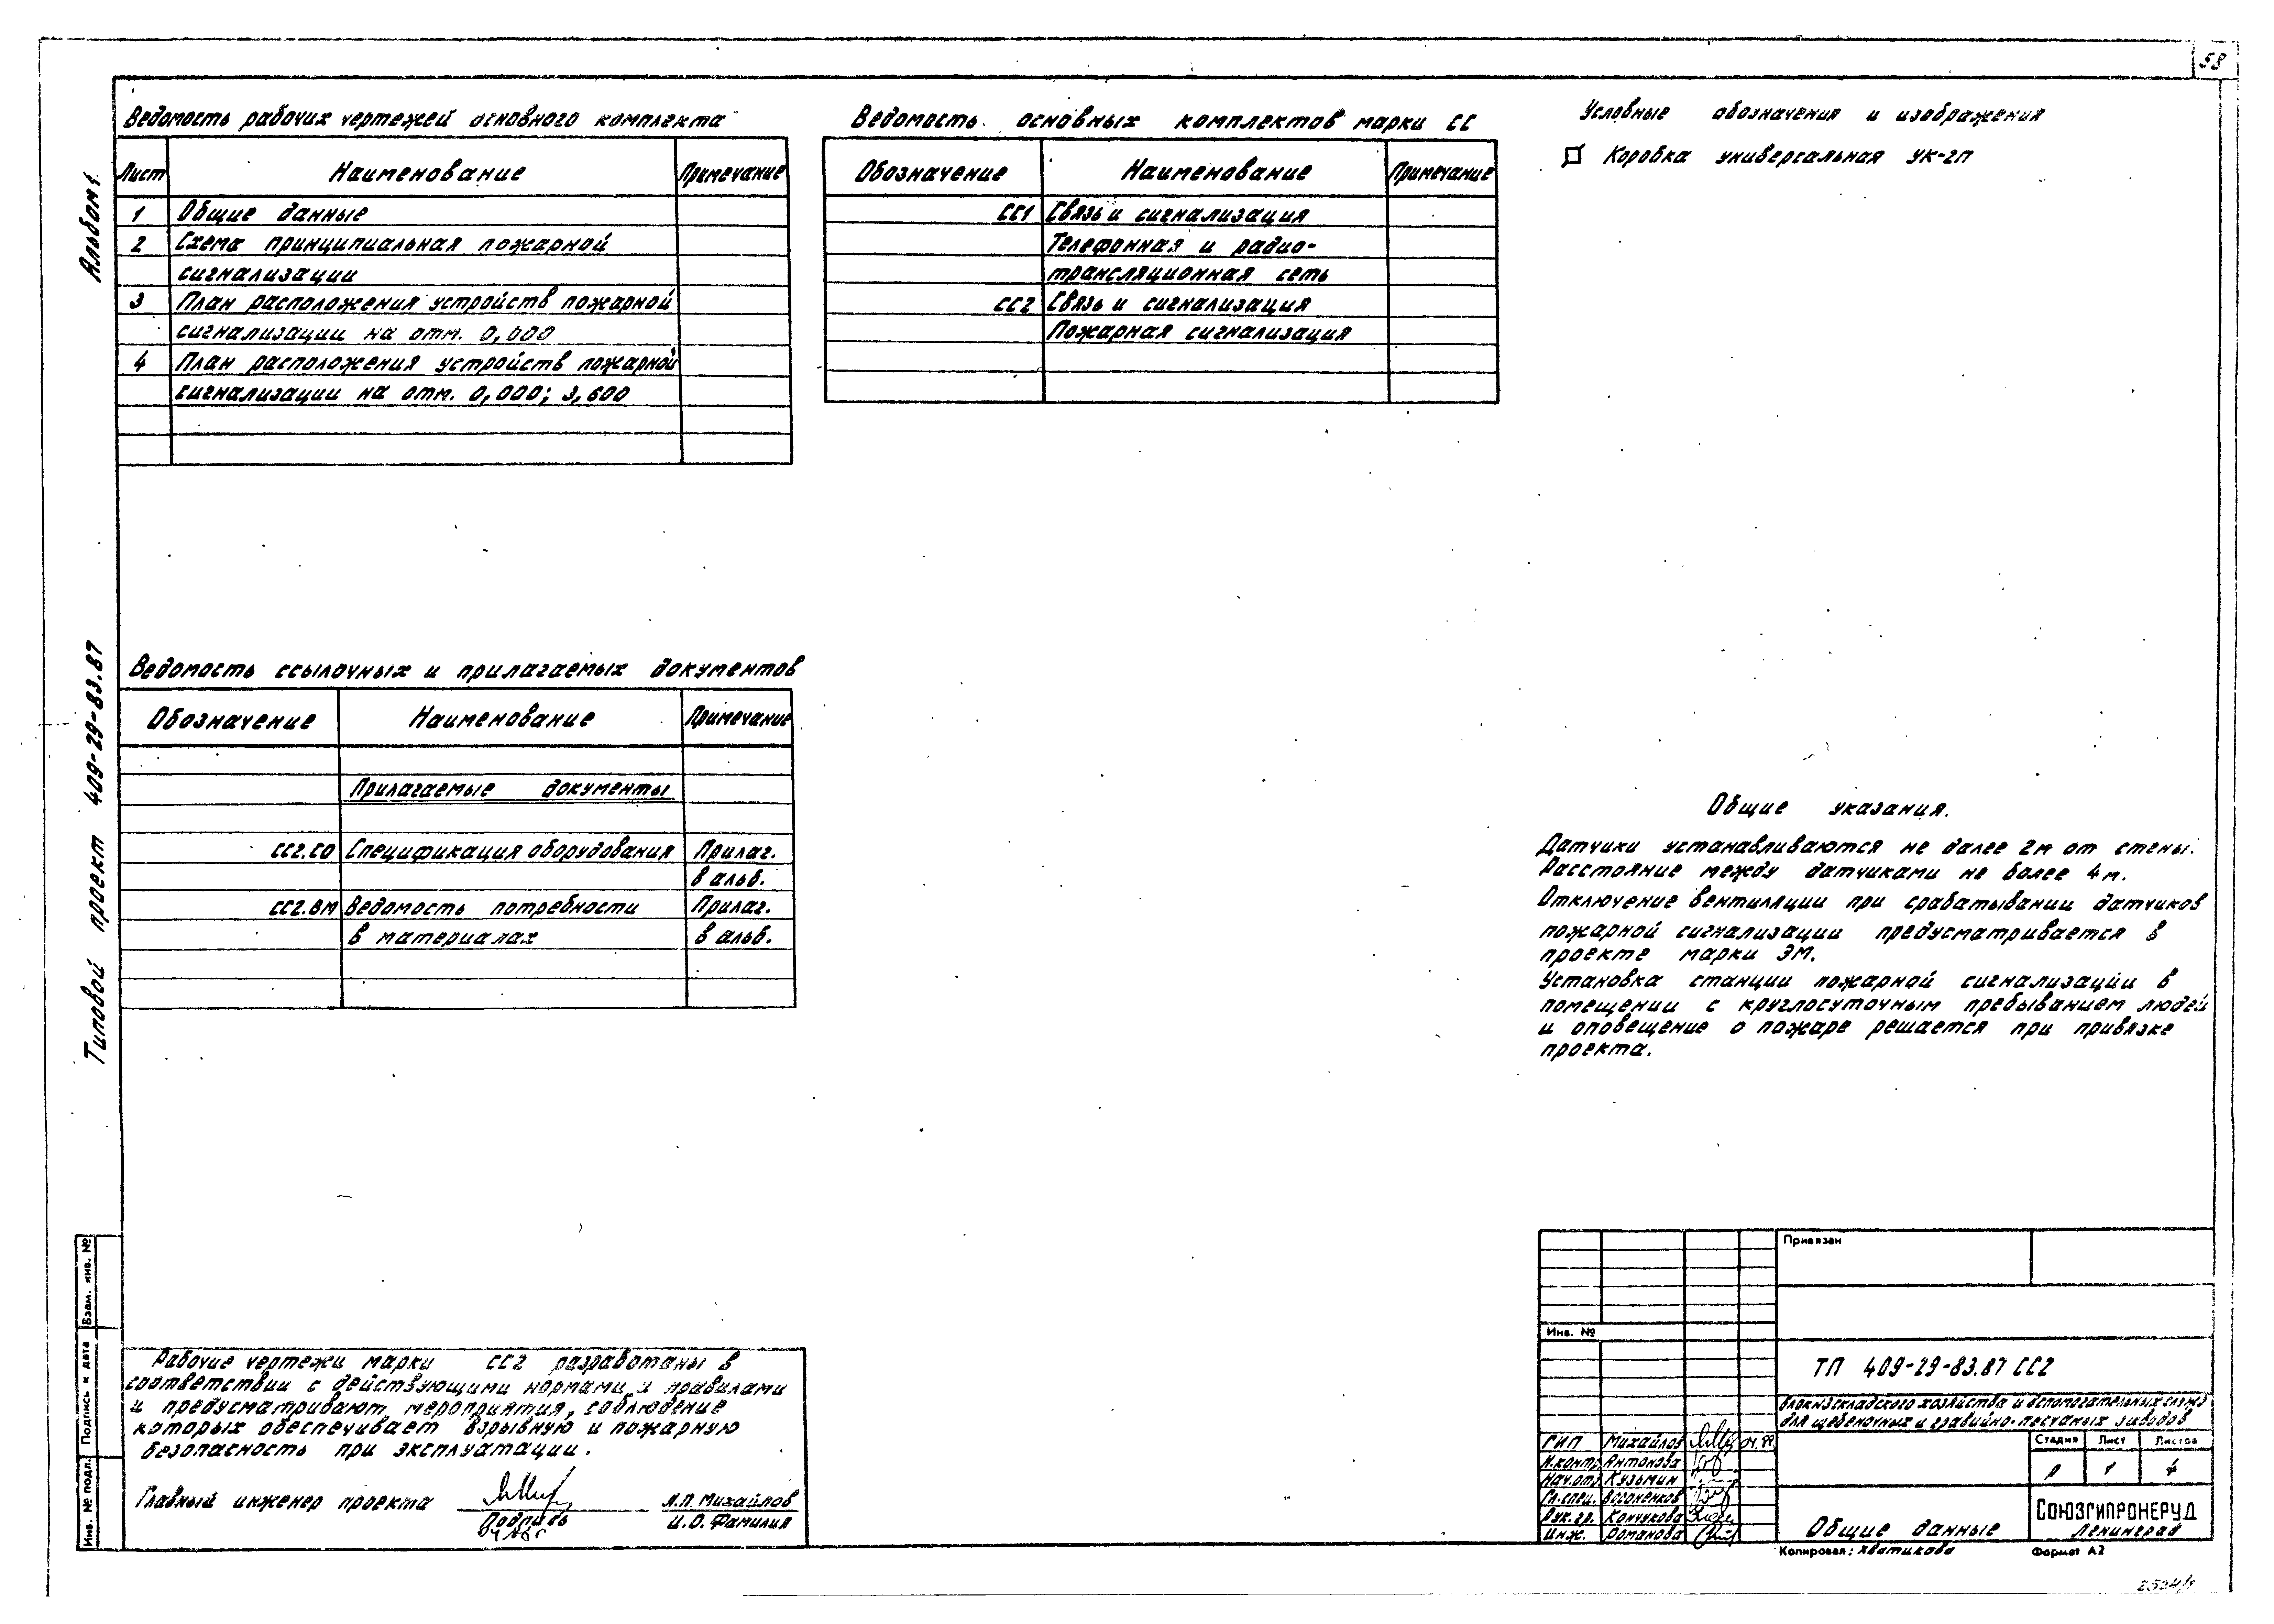 58
Альбом 1.
Типовой проект 409-29-83.87
Ведомость рабочих чертежей основного комплекта
Лист Наименование Примечание
1 Общие данные
2 Схема принципиальная пожарной
сигнализации
3 План расположения устройств пожарной
сигнализации на отм. 0,000
4 План расположения устройств пожарной
сигнализации на отм. 0,000; 3,600
Ведомость основных комплектов марки СС
Обозначение Наименование Примечание
СС1 Связь и сигнализация
Телефонная и радио-
трансляционная сеть
СС2 Связь и сигнализация
Пожарная сигнализация
Условные обозначения и изображения
Коробка универсальная УК-2П
Ведомость ссылочных и прилагаемых документов
Обозначение Наименование Примечание
Прилагаемые документы
СС2.СО Спецификация оборудования Прилаг.
в альб.
СС2.ВМ Ведомость потребности Прилаг.
в материалах в альб.
Общие указания.
Датчики устанавливаются не далее 2м от стены.
Расстояние между датчиками не более 4м.
Отключение вентиляции при срабатывании датчиков
пожарной сигнализации предусматривается в
проекте марки ЭМ.
Установка станции пожарной сигнализации в
помещении с круглосуточным пребыванием людей
и оповещение о пожаре решается при привязке
проекта.
Рабочие чертежи марки СС2 разработаны в
соответствии с действующими нормами и правилами
и предусматривают мероприятия, соблюдение
которых обеспечивает взрывную и пожарную
безопасность при эксплуатации.
Главный инженер проекта А.П. Михайлов
Подпись И.О. Фамилия
Взам. инв. №
Подпись и дата
Инв. № подл.
Привязан
Инв. №
ТП 409-29-83.87 СС2
Блок из складского хозяйства и вспомогательных служб
для щебеночных и гравийно-песчаных заводов
ГИП Михайлов
Н.контр. Антонова
Нач.отд. Кузьмин
Гл.спец. Вороненков
Рук.гр. Кончукова
Инж. Романова
Стадия Лист Листов
Р 1 4
Общие данные
СОЮЗГИПРОНЕРУД
Ленинград
Копировал: Хватикова Формат А2